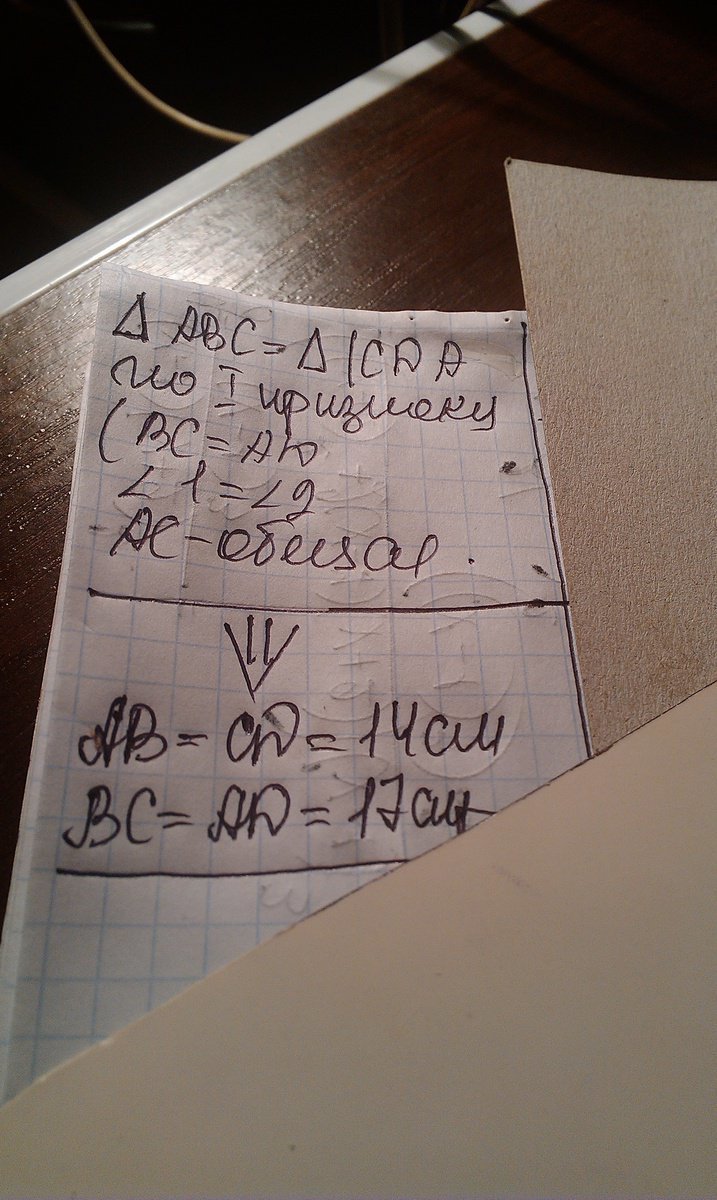 Δ ABC = Δ |CDA
по I признаку
(BC = AD
∠1 = ∠2
AC - общая.
⇓
AB = CD = 14 см
BC = AD = 17 см